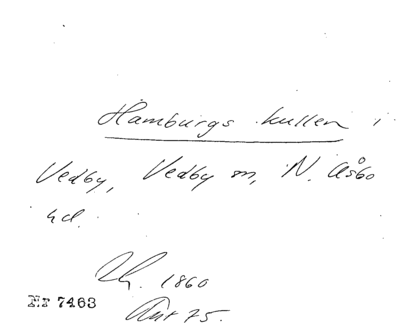 Hamburgs kullen i
Vedby, Vedby sn, N. Åsbo
hd.
1860
Nr 7463
75.